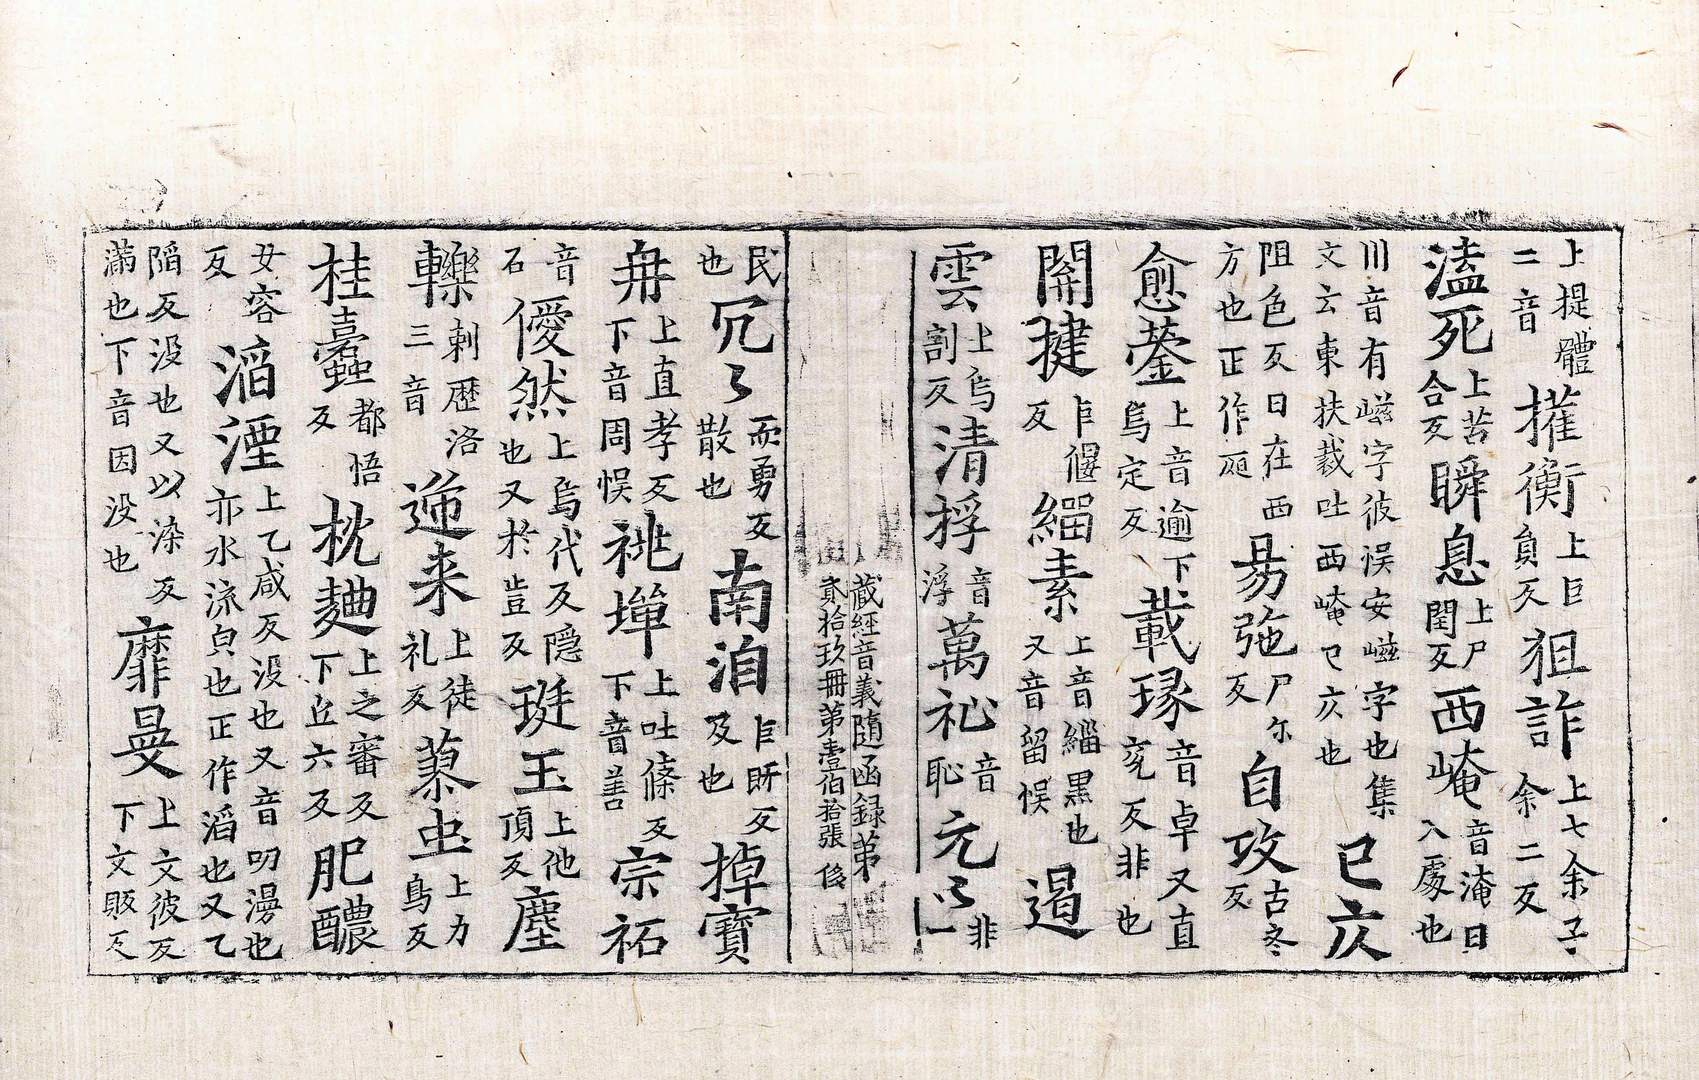 上提體二音攉衡上巨負反狙詐上七余子余二反
溘死上苦合反瞬息上尸閏反西崦音淹日入處也
川音有嵫字彼悮安嵫字也集文云東扶䕏吐西崦已亥也已亥
阻色反日在西方也正作昃昜㢮尸尔反自攻古冬反
愈蓥上音逾下烏定反載瑑音卓又直兖反非也
開揵巨偃反緇素上音緇黒也又音留悮遏
雲上烏割反清捊音浮萬祉音恥元以非
藏經音義隨函録第貳拾玖冊第壹伯拾張
民也冗々而勇反散也南洎巨旣反及也掉寳
冉上直孝反下音周悮祧墠上吐條反下音善宗祏
音石僾然上烏代反隱也又於豈反珽玉上他頂反塵
轢剌歷洛三音递来上徒礼反蔂虫上力鳥反
桂蠹都悟反枕麯上之審反下丘六反肥醲
女容反滔湮上乙咸反没也又音叨漫也亦水流皃也正作滔也又乙
䧟反没也又以染反滿也下音因没也靡曼上文彼反下文販反